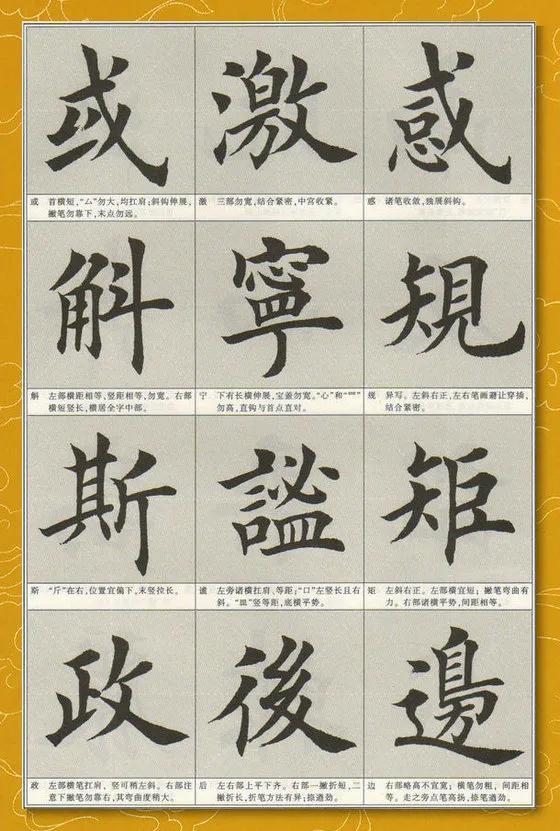 或 激 感
或 首横短，“厶”勿大，均扛肩；斜钩伸展，
撇笔勿靠下，末点勿远。
激 三部勿宽，结合紧密，中宫收紧。
感 诸笔收敛，独展斜钩。
斛 寧 規
斛 左部横距相等，竖距相等，勿宽。右部
横短竖长，横居全字中部。
宁 下有长横伸展，宝盖勿宽。“心”和“罒”
勿高，直钩与首点直对。
规 异写。左斜右正，左右笔画避让穿插，
结合紧密。
斯 謐 矩
斯 “斤”在右，位置宜偏下，末竖拉长。
谧 左旁诸横扛肩、等距；“口”左竖长且右
斜。“皿”竖等距，底横平势。
矩 左斜右正。左部横宜短；撇笔弯曲有
力。右部诸横平势，间距相等。
政 後 邊
政 左部横笔扛肩，竖可稍左斜。右部注
意下撇笔勿靠右，其弯曲度稍大。
后 左右部上平下齐。右部一撇折短，二
撇折长，折笔方法有异；捺遒劲。
边 右部略高不宜宽；横笔勿粗，间距相
等。走之旁点笔高扬，捺笔遒劲。